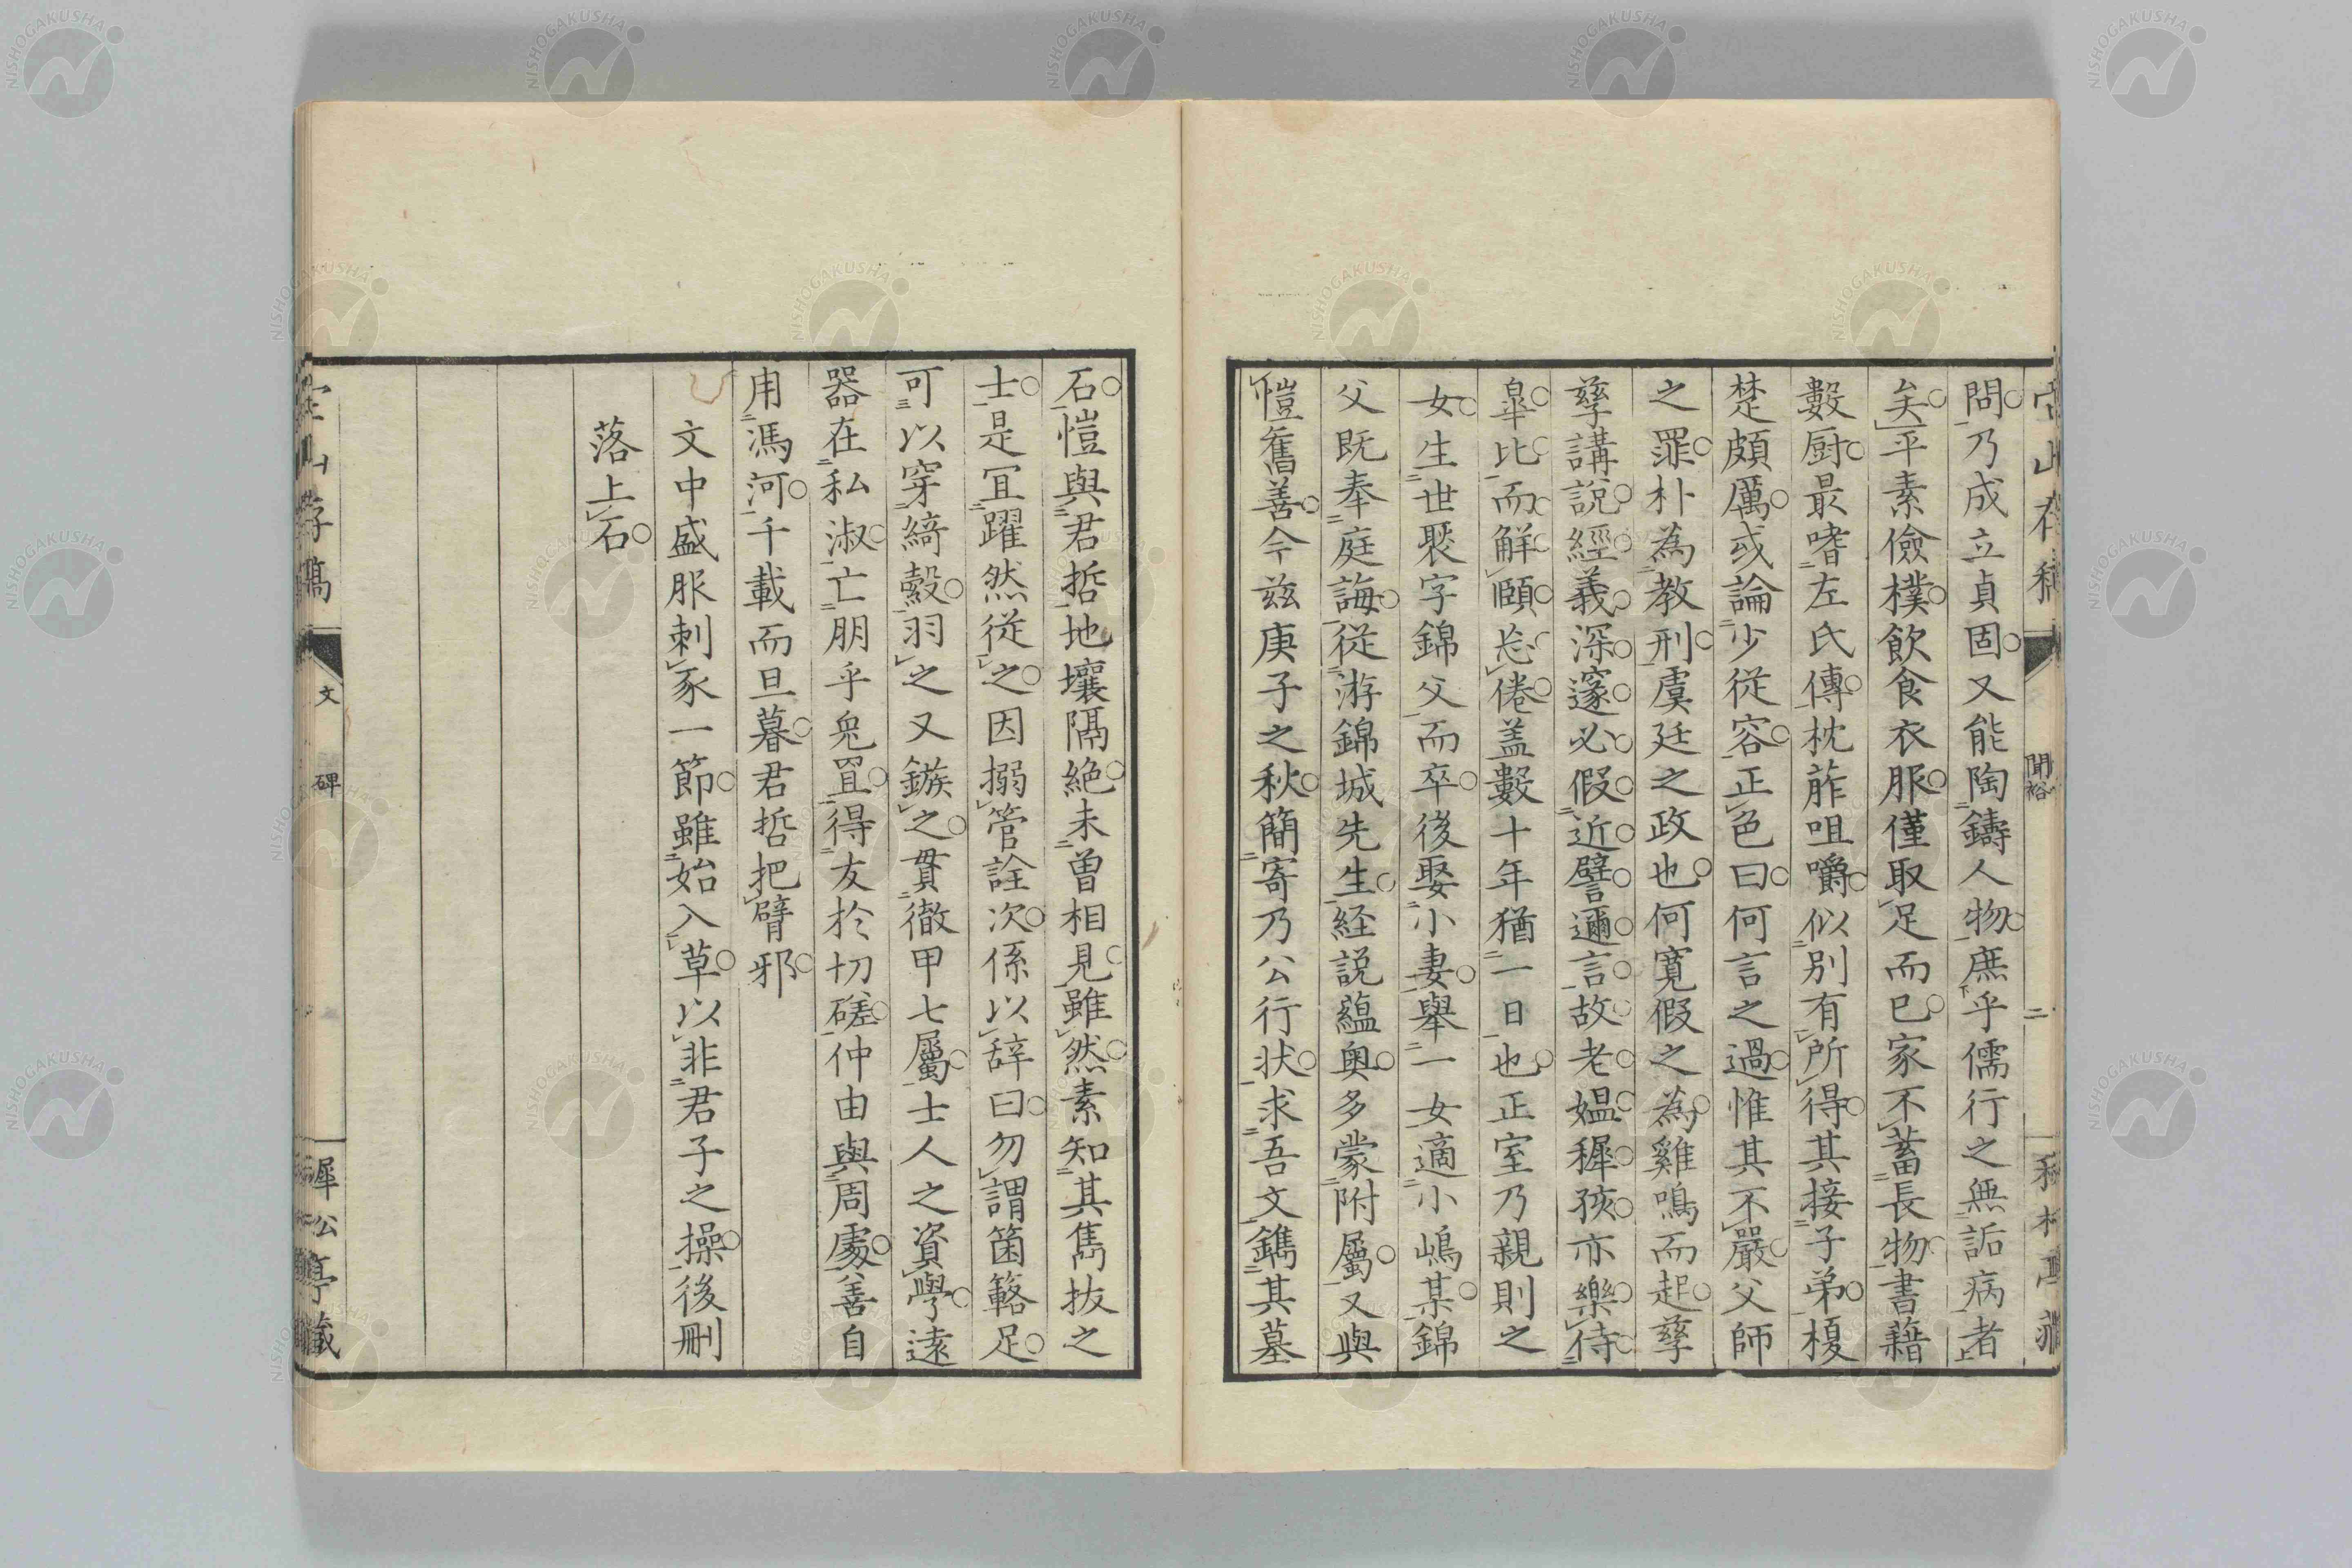 問乃成立貞固又能陶鑄人物庶乎儒行之無詬病者
矣平素儉樸飲食衣服僅取足而已家不蓄長物書籍
數厨最嗜左氏傳枕葄咀嚼似別有所得其接子弟榎
楚頗厲或論少從容正色曰何言之過惟其不嚴父師
之罪朴為教刑虞廷之政也何寬假之為雞鳴而起孳
孳講說經義深邃必假近譬邇言故老媼穉孩亦樂侍
皐比而解頤忘倦盖數十年猶一日也正室乃親則之
女生世聚字錦父而卒後娶小妻舉一女適小嶋某錦
父既奉庭誨從游錦城先生経説蘊奥多蒙附屬又與
愷舊善今茲庚子之秋簡寄乃公行状求吾文鐫其墓
石愷與君哲地壤隔絶未曽相見雖然素知其雋抜之
士是冝躍然従之因搦管詮次係以辞曰勿謂箘簬足
可以穿綺縠羽之又鏃之貫徹甲七屬士人之資學遠
器在私淑亡朋乎兎罝得友於切磋仲由與周處善自
用馮河千載而旦暮君哲把臂邪
文中盛服刺豕一節雖始入草以非君子之操後刪
落上石
文
碑
二
NISHOGAKUSHA